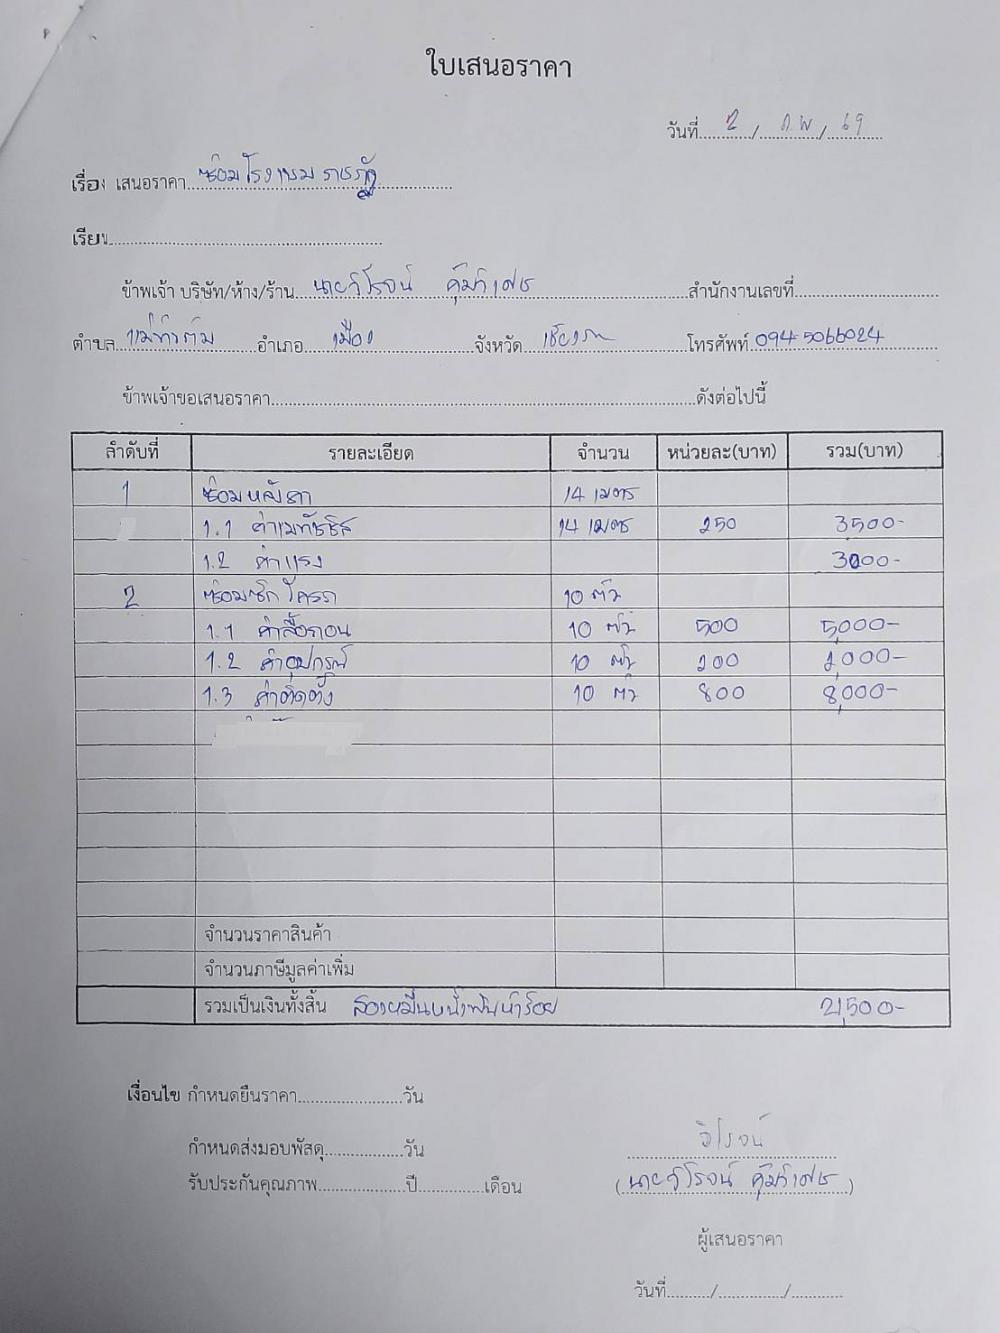 ใบเสนอราคา
วันที่ 2 / ก.พ / 69
เรื่อง เสนอราคา ซ่อมโรงแรม ราชภัฏ
เรียน
ข้าพเจ้า บริษัท/ห้าง/ร้าน นายวิโรจน์ สำนักงานเลขที่
ตำบล แม่ข้าวต้ม อำเภอ เมือง จังหวัด เชียงราย โทรศัพท์ 094-5066024
ข้าพเจ้าขอเสนอราคา ดังต่อไปนี้
ลำดับที่ รายละเอียด จำนวน หน่วยละ(บาท) รวม(บาท)
1 ซ่อมหลังคา 14 เมตร
1.1 ค่าเมทัลชีส 14 เมตร 250 3500-
1.2 ค่าแรง 3000-
2 ซ่อมชักโครก 10 ตัว
1.1 ค่ารื้อถอน 10 ตัว 500 5,000-
1.2 ค่าอุปกรณ์ 10 ตัว 200 2,000-
1.3 ค่าติดตั้ง 10 ตัว 800 8,000-
จำนวนราคาสินค้า
จำนวนภาษีมูลค่าเพิ่ม
รวมเป็นเงินทั้งสิ้น สองหมื่นหนึ่งพันห้าร้อย 21,500-
เงื่อนไข กำหนดยืนราคา วัน
กำหนดส่งมอบพัสดุ วัน
วิโรจน์
รับประกันคุณภาพ ปี เดือน
(นายวิโรจน์ )
ผู้เสนอราคา
วันที่ / /